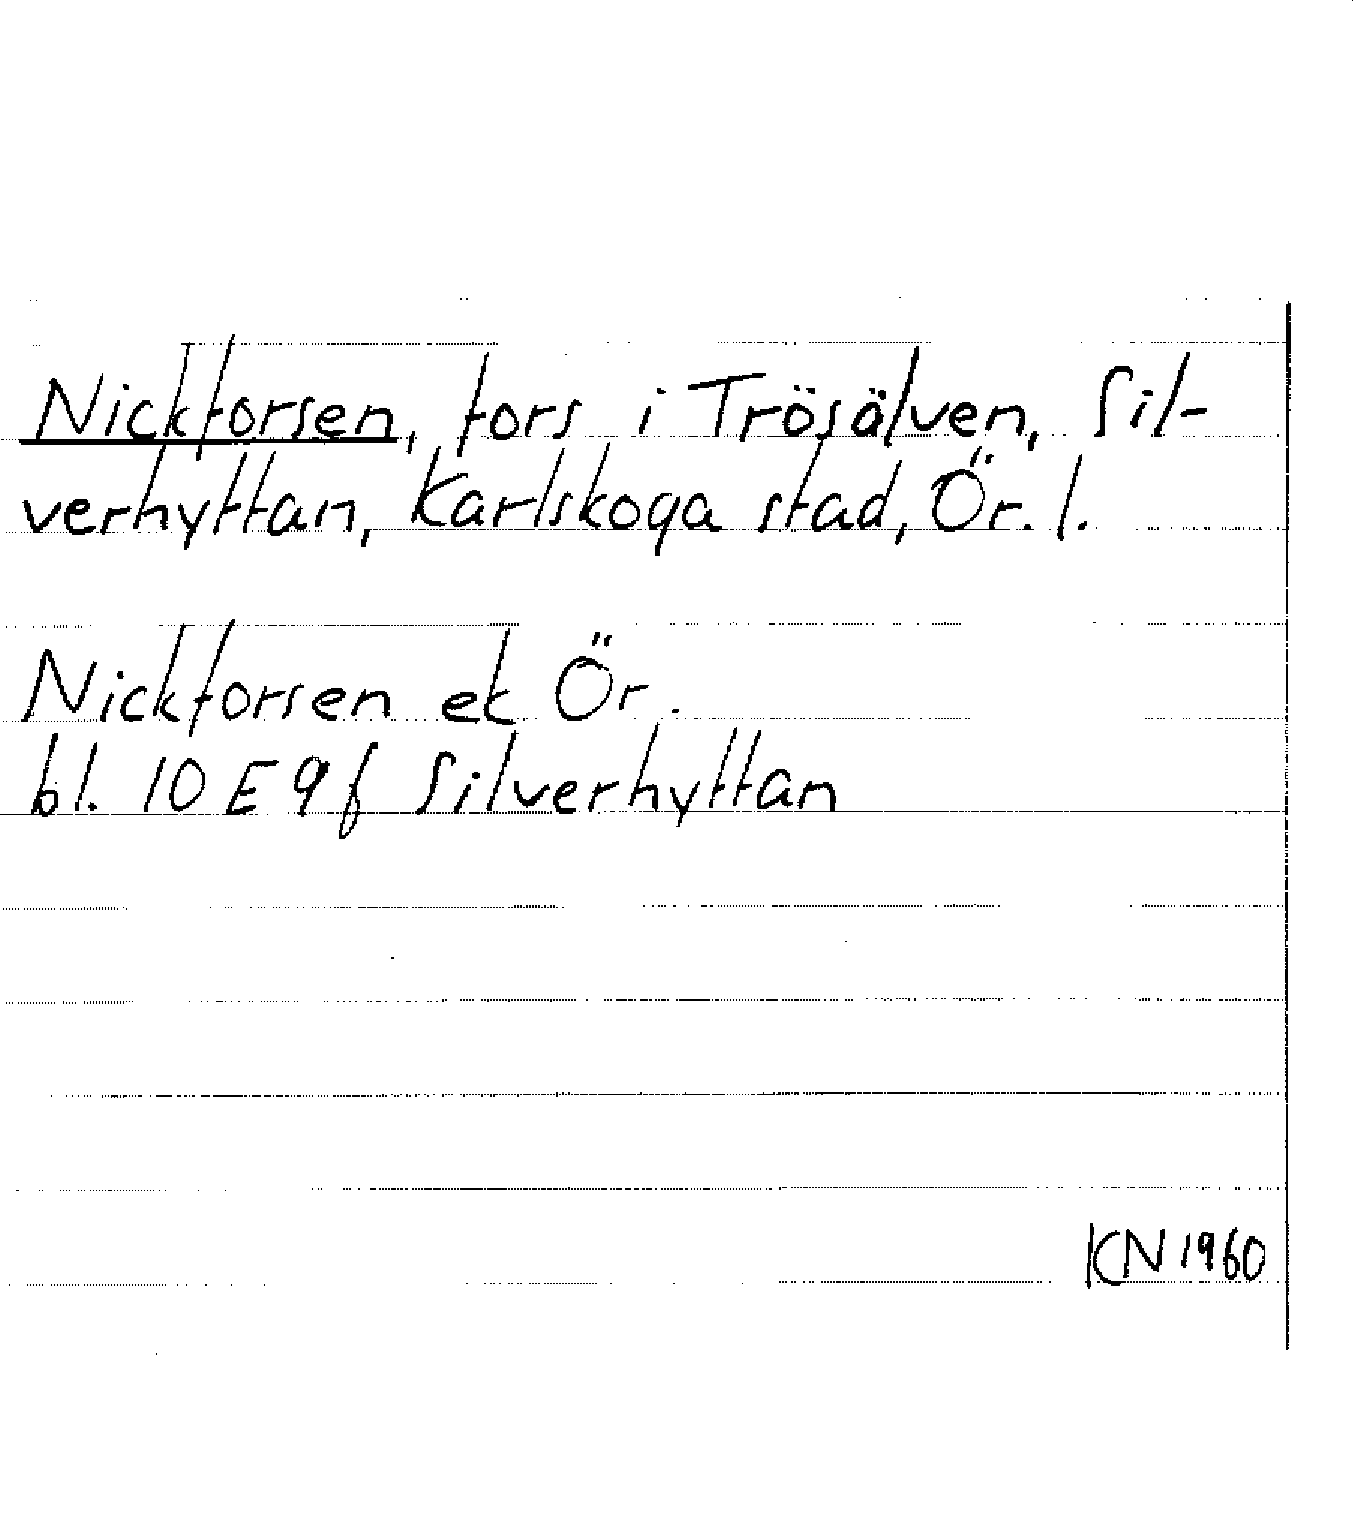 Nickforsen, fors i Trösälven, Sil-
verhyttan, Karlskoga stad, Ör. l.
Nickforsen ek Ör.
bl. 10 E 9 f Silverhyttan
KN 1960